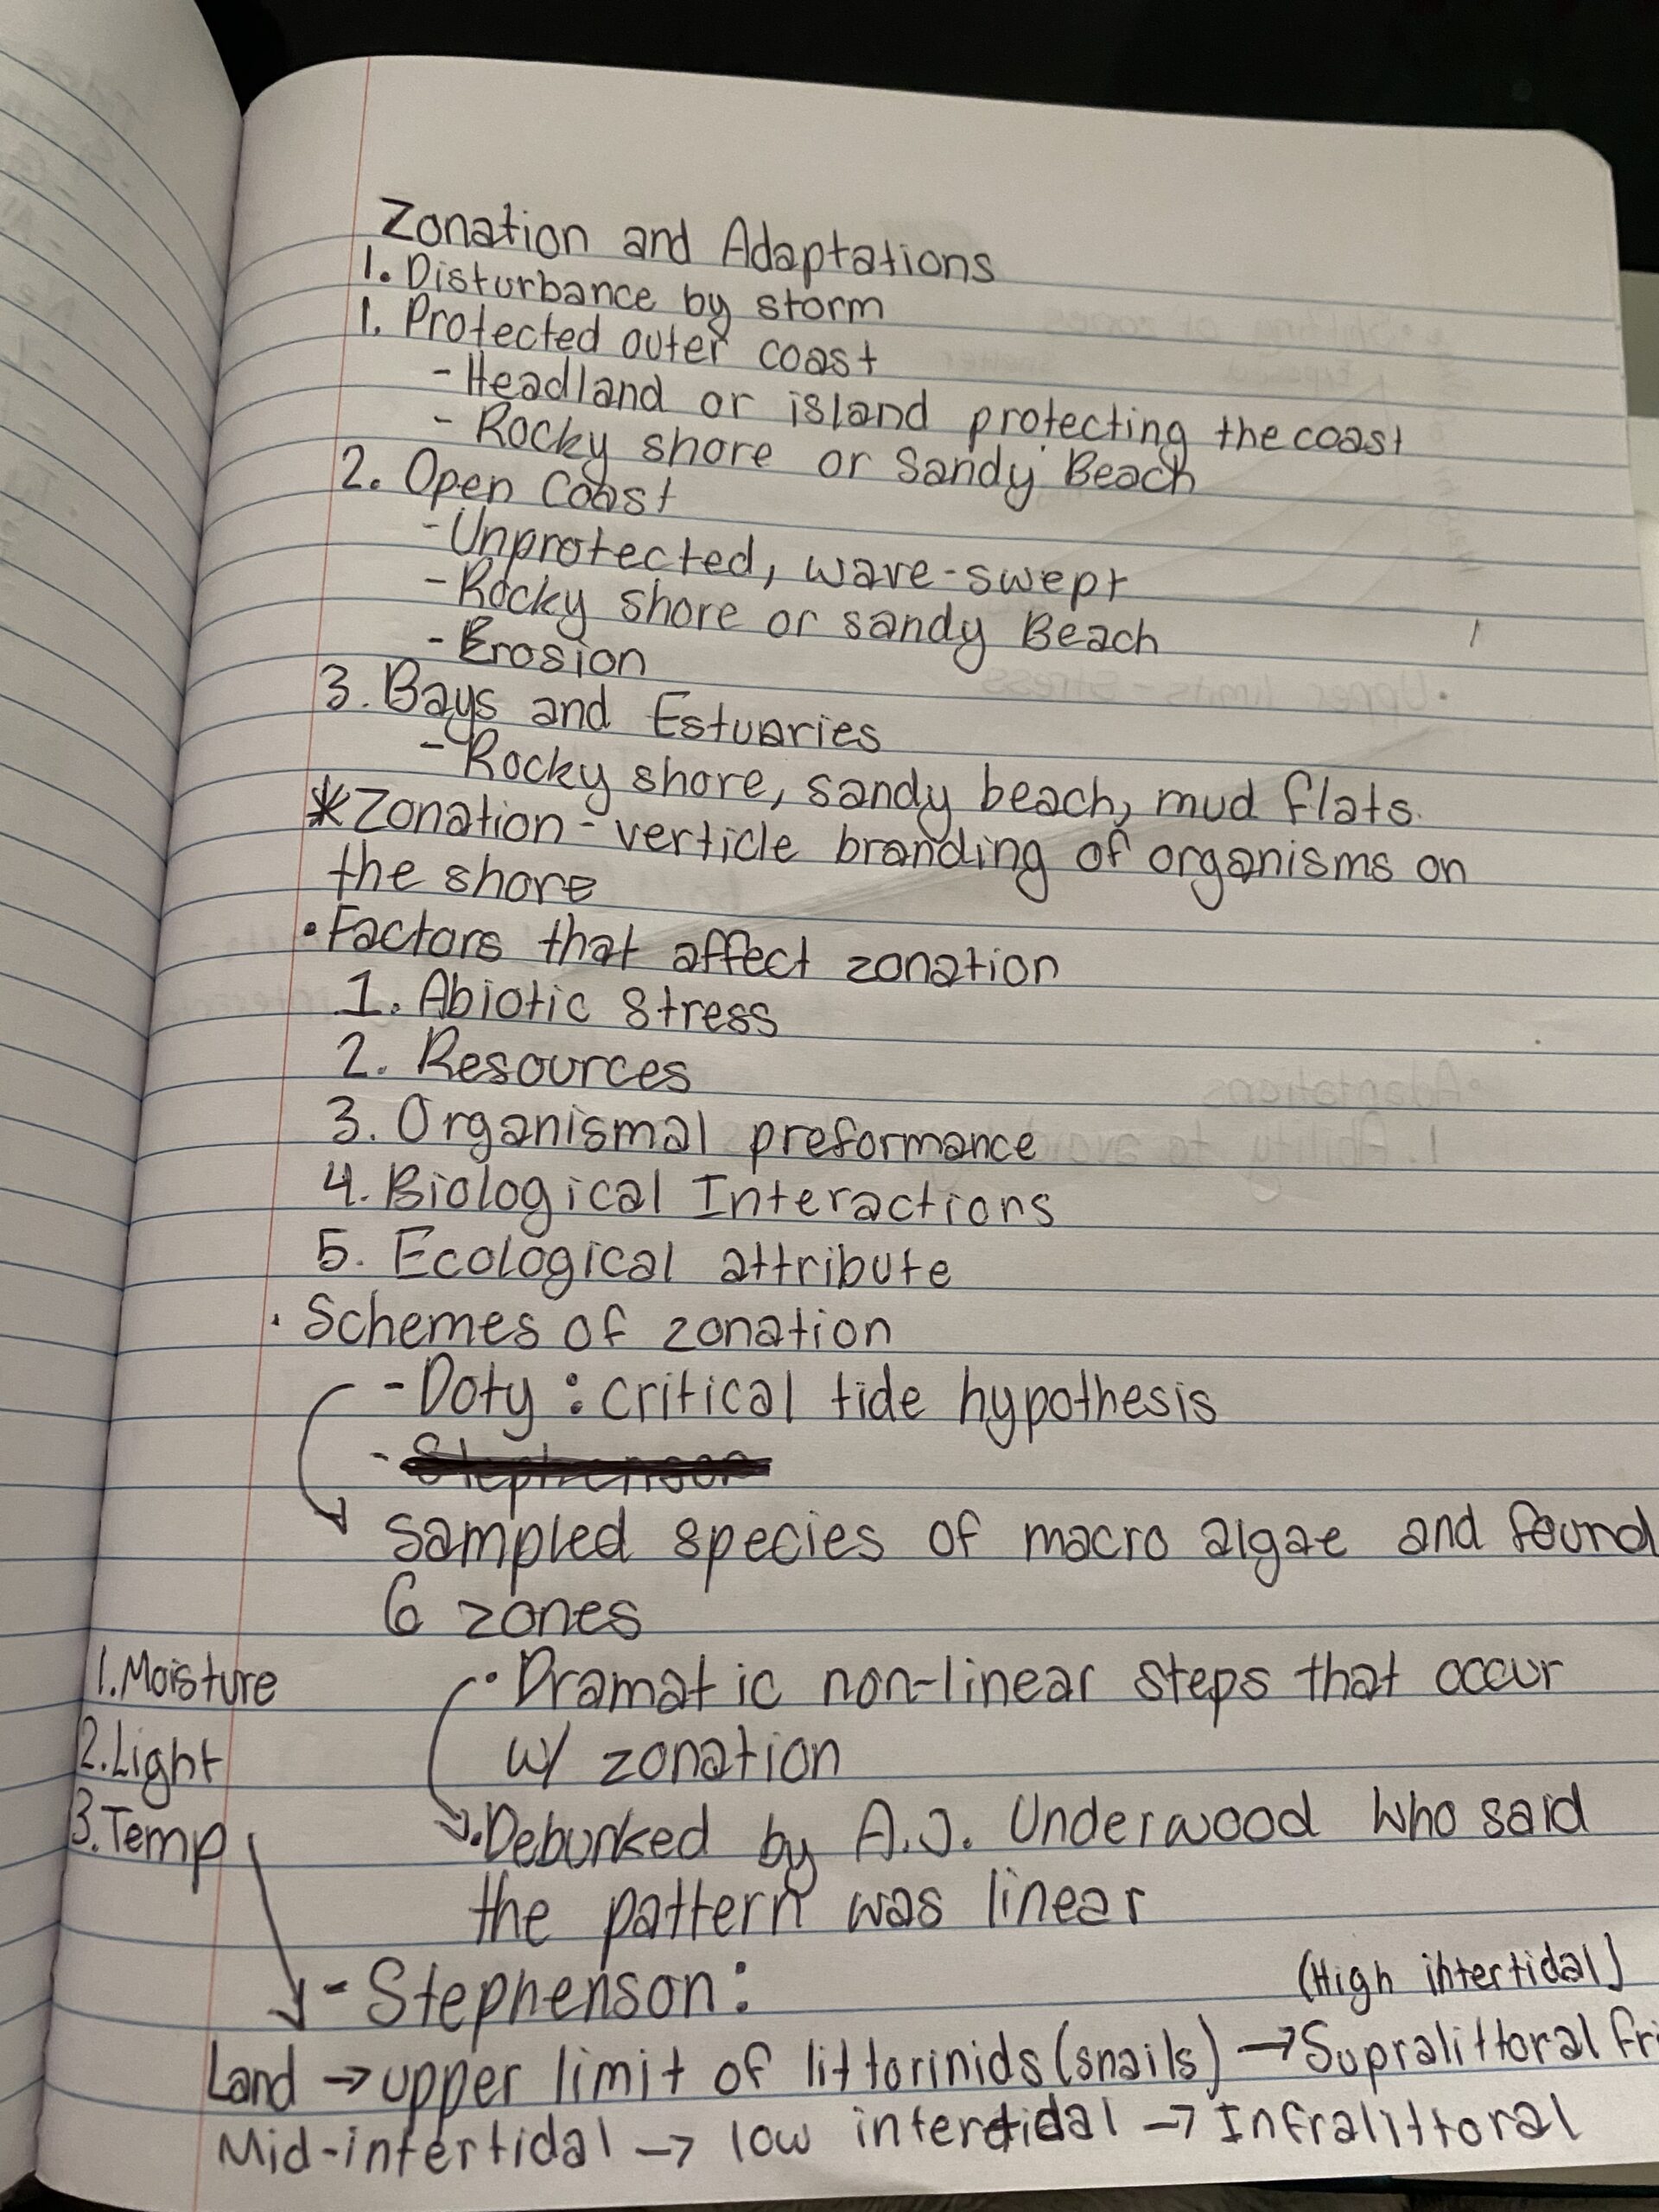 Zonation and Adaptations
1. Disturbance by storm
1. Protected outer coast
- Headland or island protecting the coast
- Rocky shore or Sandy Beach
2. Open Coast
- Unprotected, wave-swept
- Rocky shore or sandy Beach
- Erosion
3. Bays and Estuaries
- Rocky shore, sandy beach, mud flats.
*Zonation - verticle branding of organisms on
the shore
• Factors that affect zonation
1. Abiotic Stress
2. Resources
3. Organismal preformance
4. Biological Interactions
5. Ecological attribute
• Schemes of zonation
- Doty : critical tide hypothesis
- Stephenson
Sampled species of macro algae and found
6 zones
1. Moisture
2. Light
3. Temp
• Dramatic non-linear steps that occur
w/ zonation
• Debunked by A.J. Underwood who said
the pattern was linear
- Stephenson:
(High intertidal)
Land → upper limit of littorinids (snails) → Supralittoral fri
Mid-intertidal → low intertidal → Infralittoral